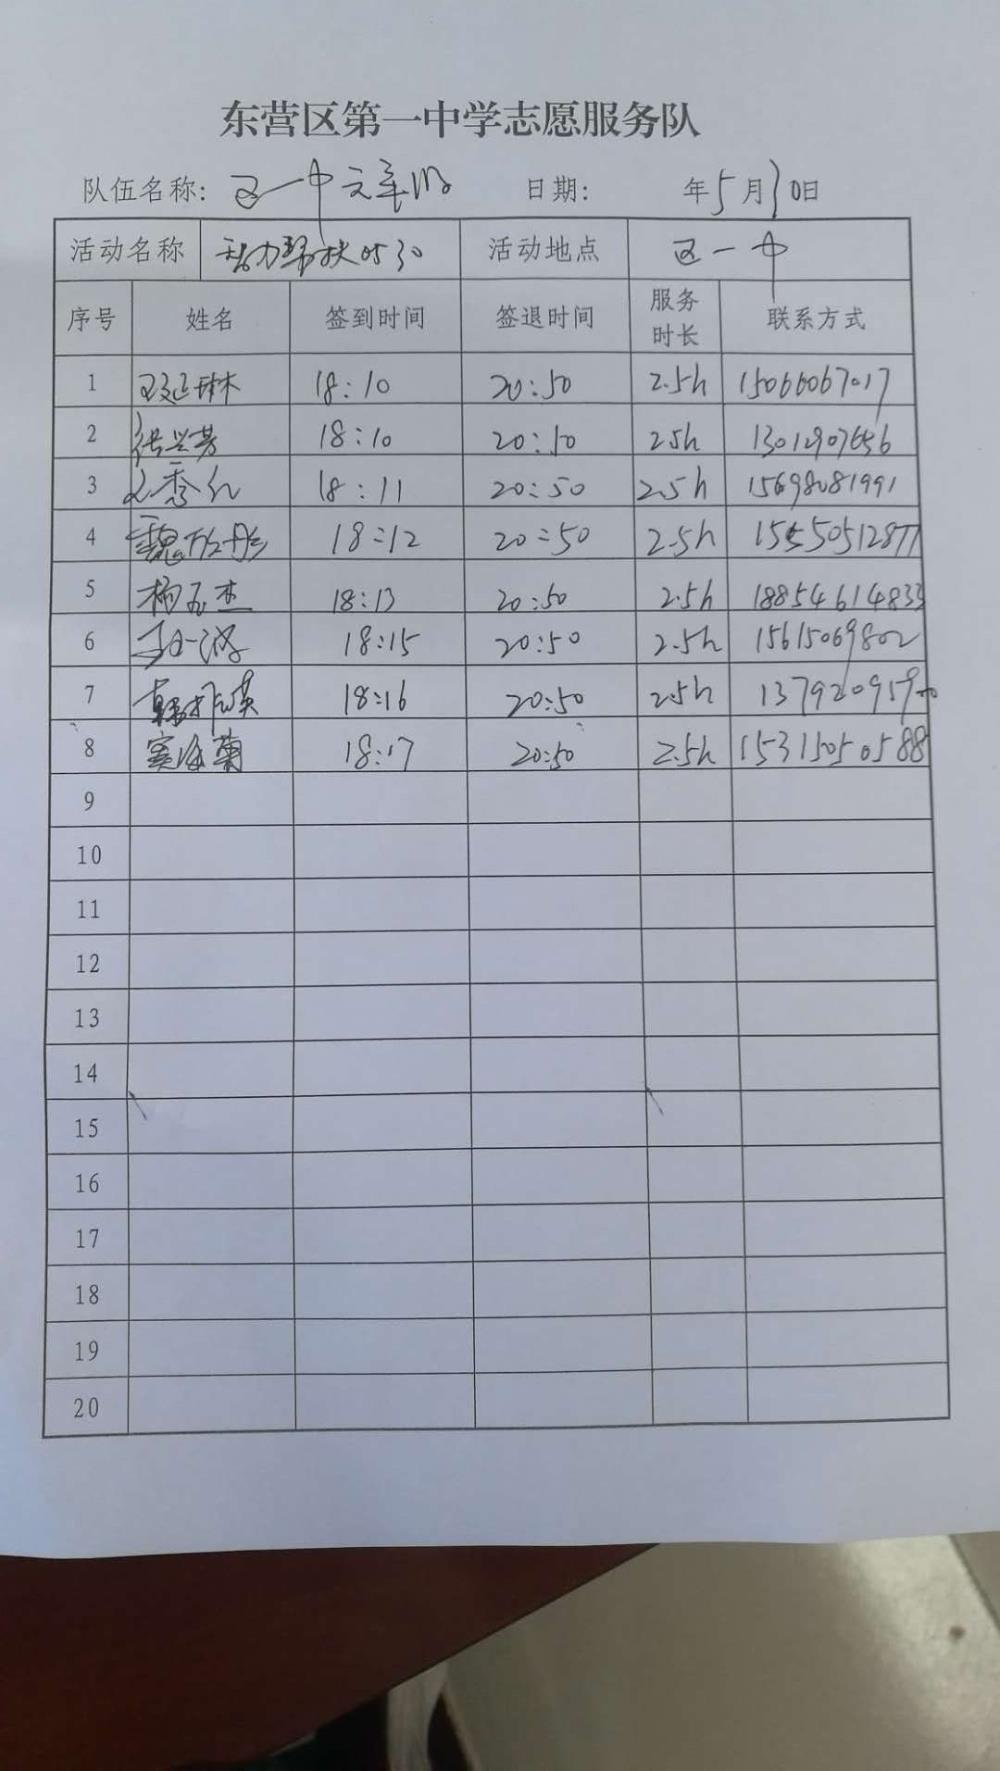 东营区第一中学志愿服务队
队伍名称: 区一中 日期: 年5月30日
活动名称 活力帮扶0530 活动地点 区一中
序号 姓名 签到时间 签退时间 服务时长 联系方式
1 18:10 20:50 2.5h 15066067017
2 张兰芳 18:10 20:50 2.5h 13012907656
3 18:11 20:50 2.5h 15698081991
4 18:12 20:50 2.5h 15550512877
5 18:13 20:50 2.5h 18854614833
6 18:15 20:50 2.5h 15615069802
7 韩振英 18:16 20:50 2.5h
8 窦海菊 18:17 20:50 2.5h 15315050588
9
10
11
12
13
14
15
16
17
18
19
20